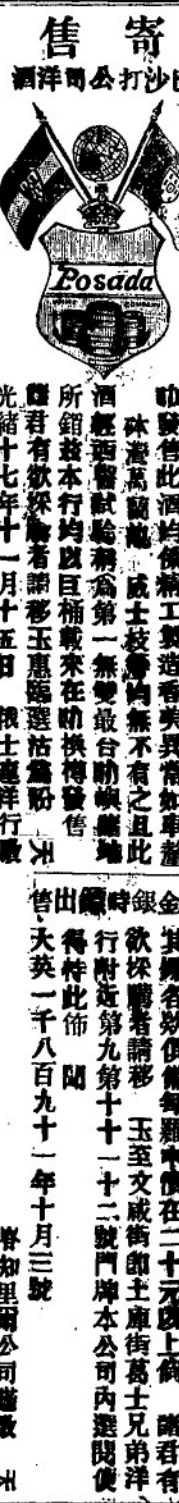 寄售
巴沙打公司洋酒
Posada
叻發售此酒均係精工製造香美異常如車釐
砵灣萬蘭地 威士枝等均無不有之且此
酒經西醫試驗稱爲第一無雙最合叻嶼
所銷茲本行均以巨桶載來在叻換樽發售
君有欲採購者請移玉惠臨選沽爲盼 天
光緒十七年十一月十五日 俄士達洋行啟
金銀時鏢出售
其鏢各欵俱備每雖中價在二十元以上倘 諸君有
欲採購者請移 玉至文咸街卽土庫街葛士兄弟洋
行附近第九第十十一十二號門牌本公司內選閱便
得特此佈 聞
大英一千八百九十一年十月三號
知里爾公司謹啟 天